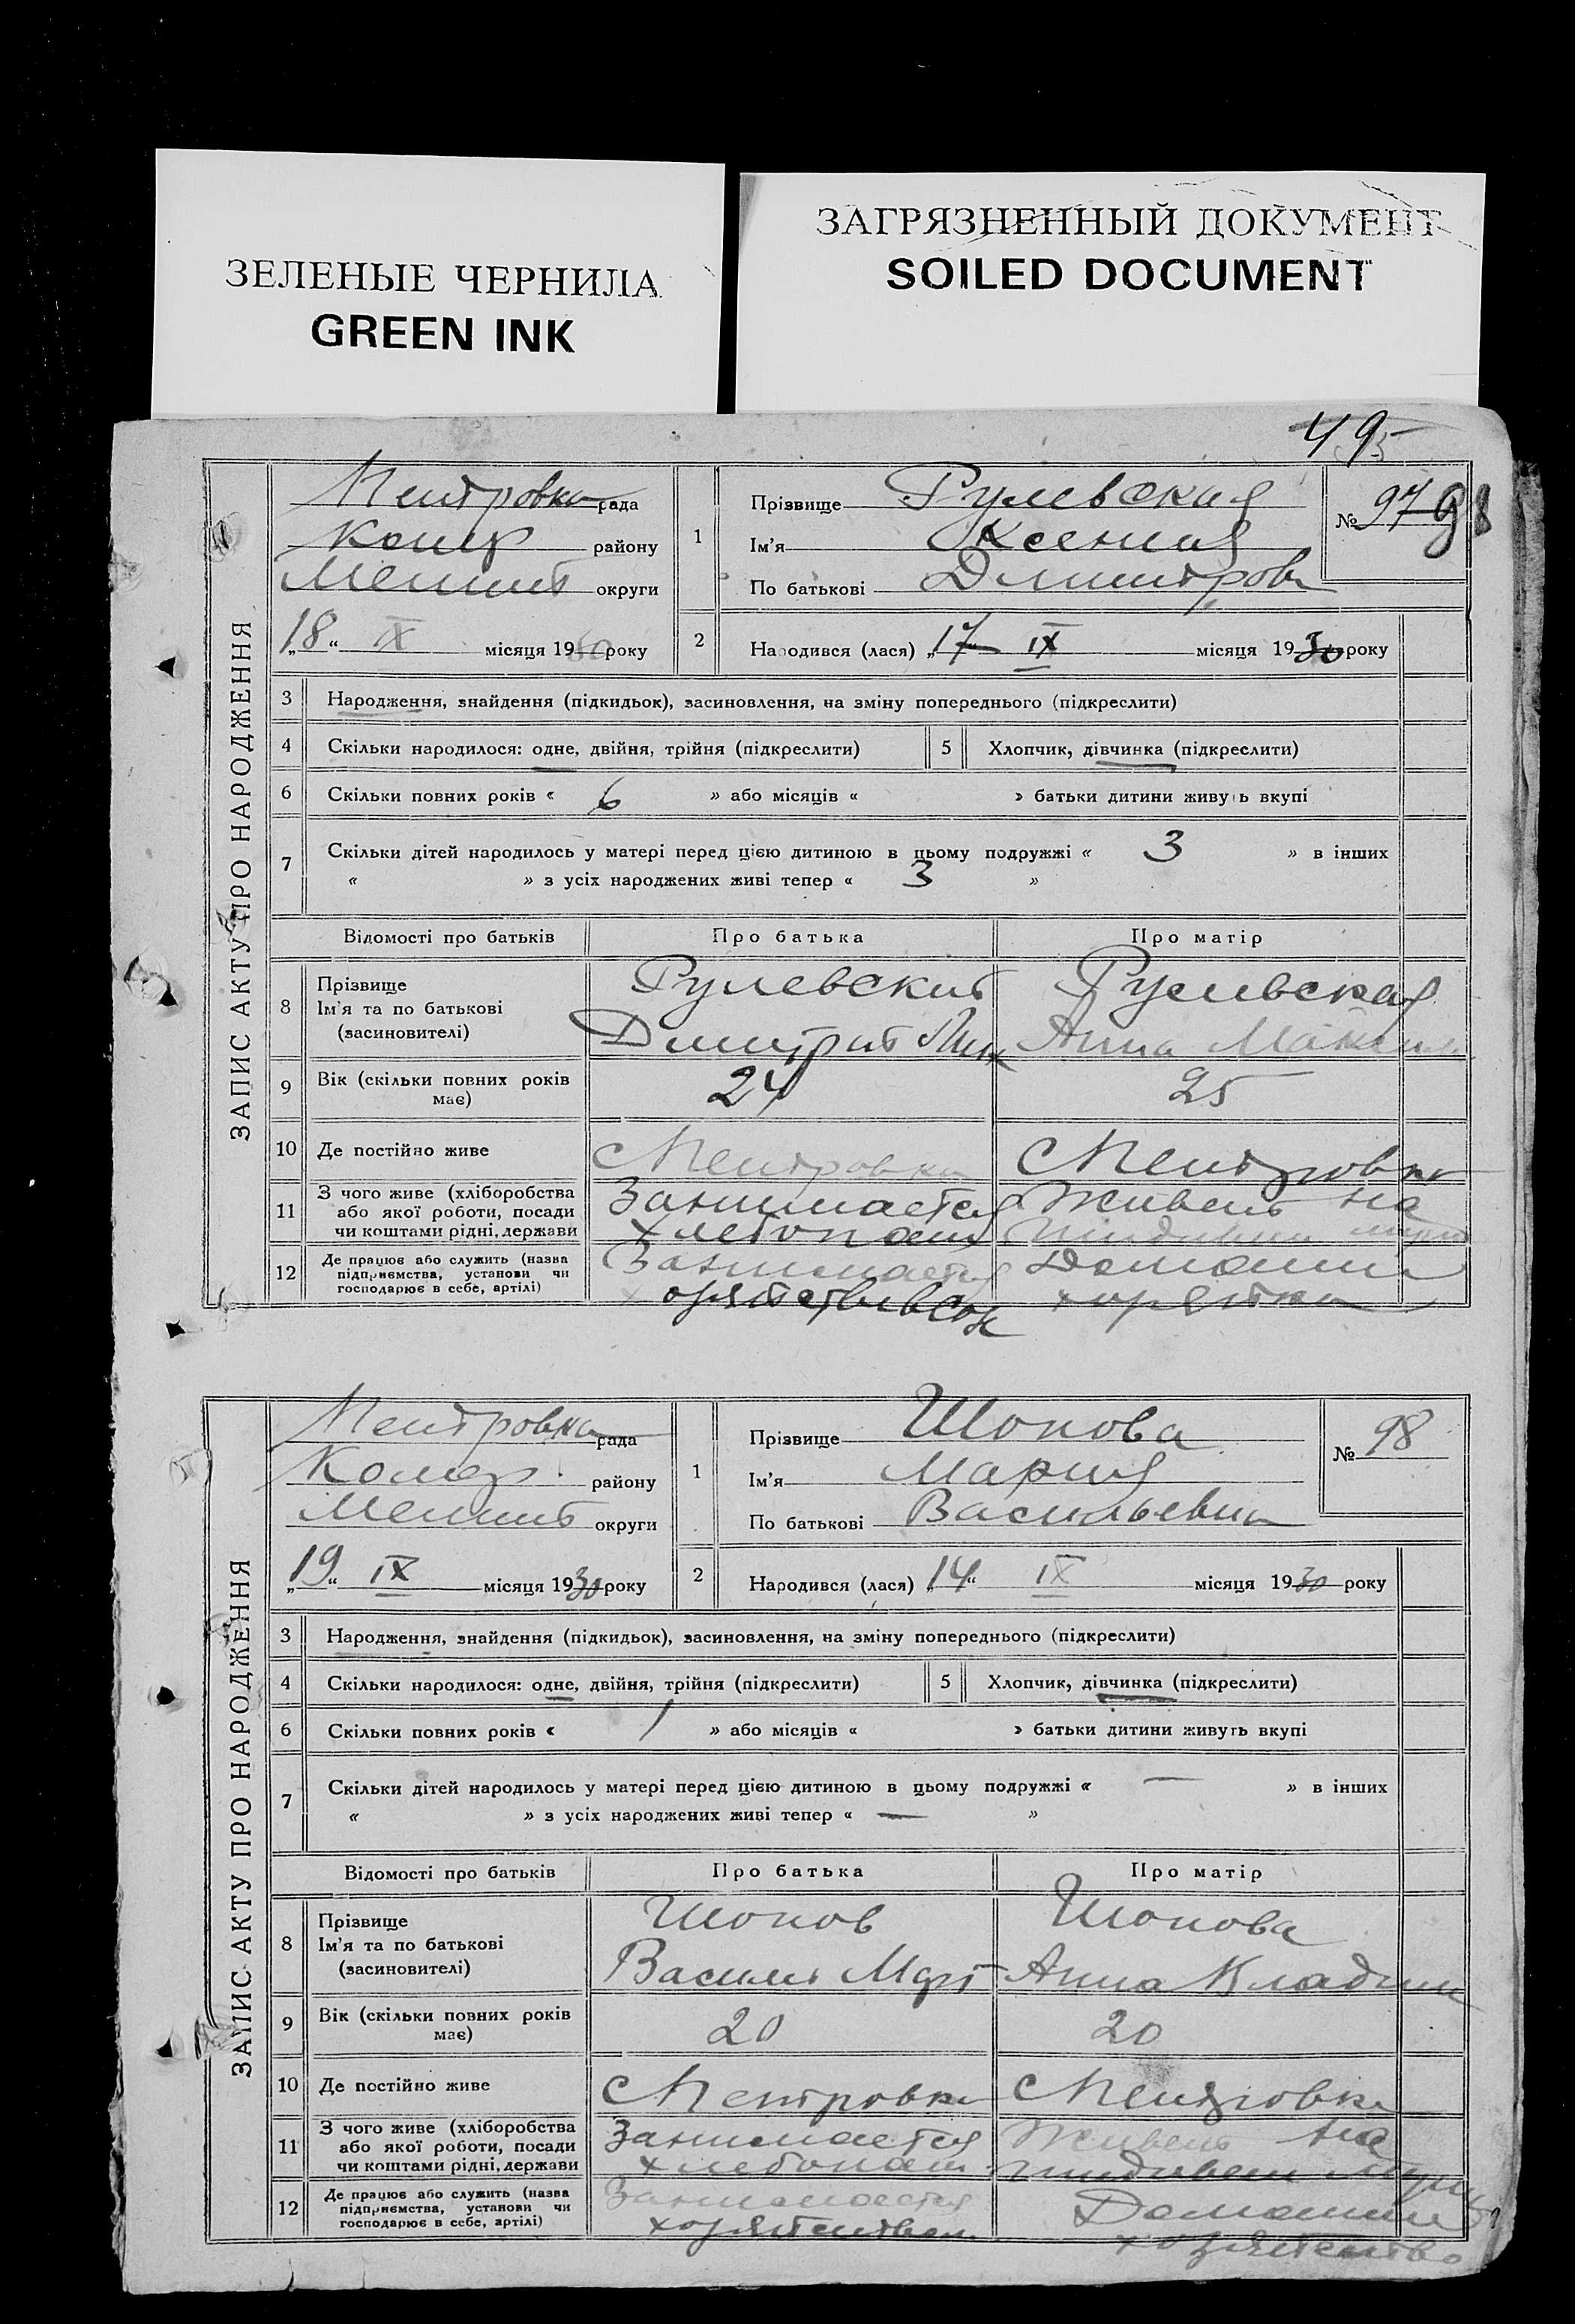 ЗЕЛЕНЫЕ ЧЕРНИЛА
GREEN INK
ЗАГРЯЗНЕННЫЙ ДОКУМЕНТ
SOILED DOCUMENT
495
ЗАПИС АКТУ ПРО НАРОДЖЕННЯ
Петровка рада
району
округи
„18“ IX місяця 19 року
1 Прізвище Рулевская
Ім’я Ксения
По батькові Дмитров
№ 97 98
2 Народився (лася) „17 IX місяця 1930 року
3 Народження, знайдення (підкидьок), засиновлення, на зміну попереднього (підкреслити)
4 Скільки народилося: одне, двійня, трійня (підкреслити) 5 Хлопчик, дівчинка (підкреслити)
6 Скільки повних років « 6 » або місяців « » батьки дитини живуть вкупі
7 Скільки дітей народилось у матері перед цією дитиною в цьому подружжі « 3 » в інших
« » з усіх народжених живі тепер « 3 »
Відомості про батьків Про батька Про матір
8 Прізвище Рулевский Рулевская
Ім’я та по батькові
(засиновителі) Дмитрий Анна Максим
9 Вік (скільки повних років має) 24 25
10 Де постійно живе С Петровка С Петровка
11 З чого живе (хліборобства Занимается Живет на
або якої роботи, посади
чи коштами рідні, держави хлебопаш мужа
12 Де працює або служить (назва Занимается Домашн
підприємства, установи чи
господарює в себе, артілі)
ЗАПИС АКТУ ПРО НАРОДЖЕННЯ
Петровка рада
району
округи
„19“ IX місяця 1930 року
1 Прізвище Шопова
Ім’я Мария
По батькові Васильевна
№ 98
2 Народився (лася) „14“ IX місяця 1930 року
3 Народження, знайдення (підкидьок), засиновлення, на зміну попереднього (підкреслити)
4 Скільки народилося: одне, двійня, трійня (підкреслити) 5 Хлопчик, дівчинка (підкреслити)
6 Скільки повних років « 1 » або місяців « » батьки дитини живуть вкупі
7 Скільки дітей народилось у матері перед цією дитиною в цьому подружжі « — » в інших
« » з усіх народжених живі тепер « — »
Відомості про батьків Про батька Про матір
8 Прізвище Шопов Шопова
Ім’я та по батькові
(засиновителі) Василий Анна
9 Вік (скільки повних років має) 20 20
10 Де постійно живе С Петровка С Петровка
11 З чого живе (хліборобства Занимается Живет на
або якої роботи, посади
чи коштами рідні, держави хлебопаш
12 Де працює або служить (назва Занимается Домашн
підприємства, установи чи
господарює в себе, артілі) хозяйством хозяйство